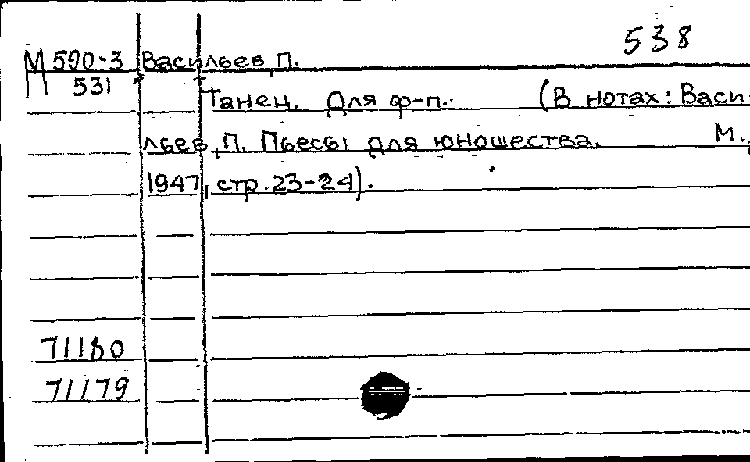 538
М 590-3 Васильев, П.
531 Танец. Для ф-п. (В нотах: Васи-
льев, П. Пьесы для юношества. М.,
1947, стр. 23-24).
71180
71179